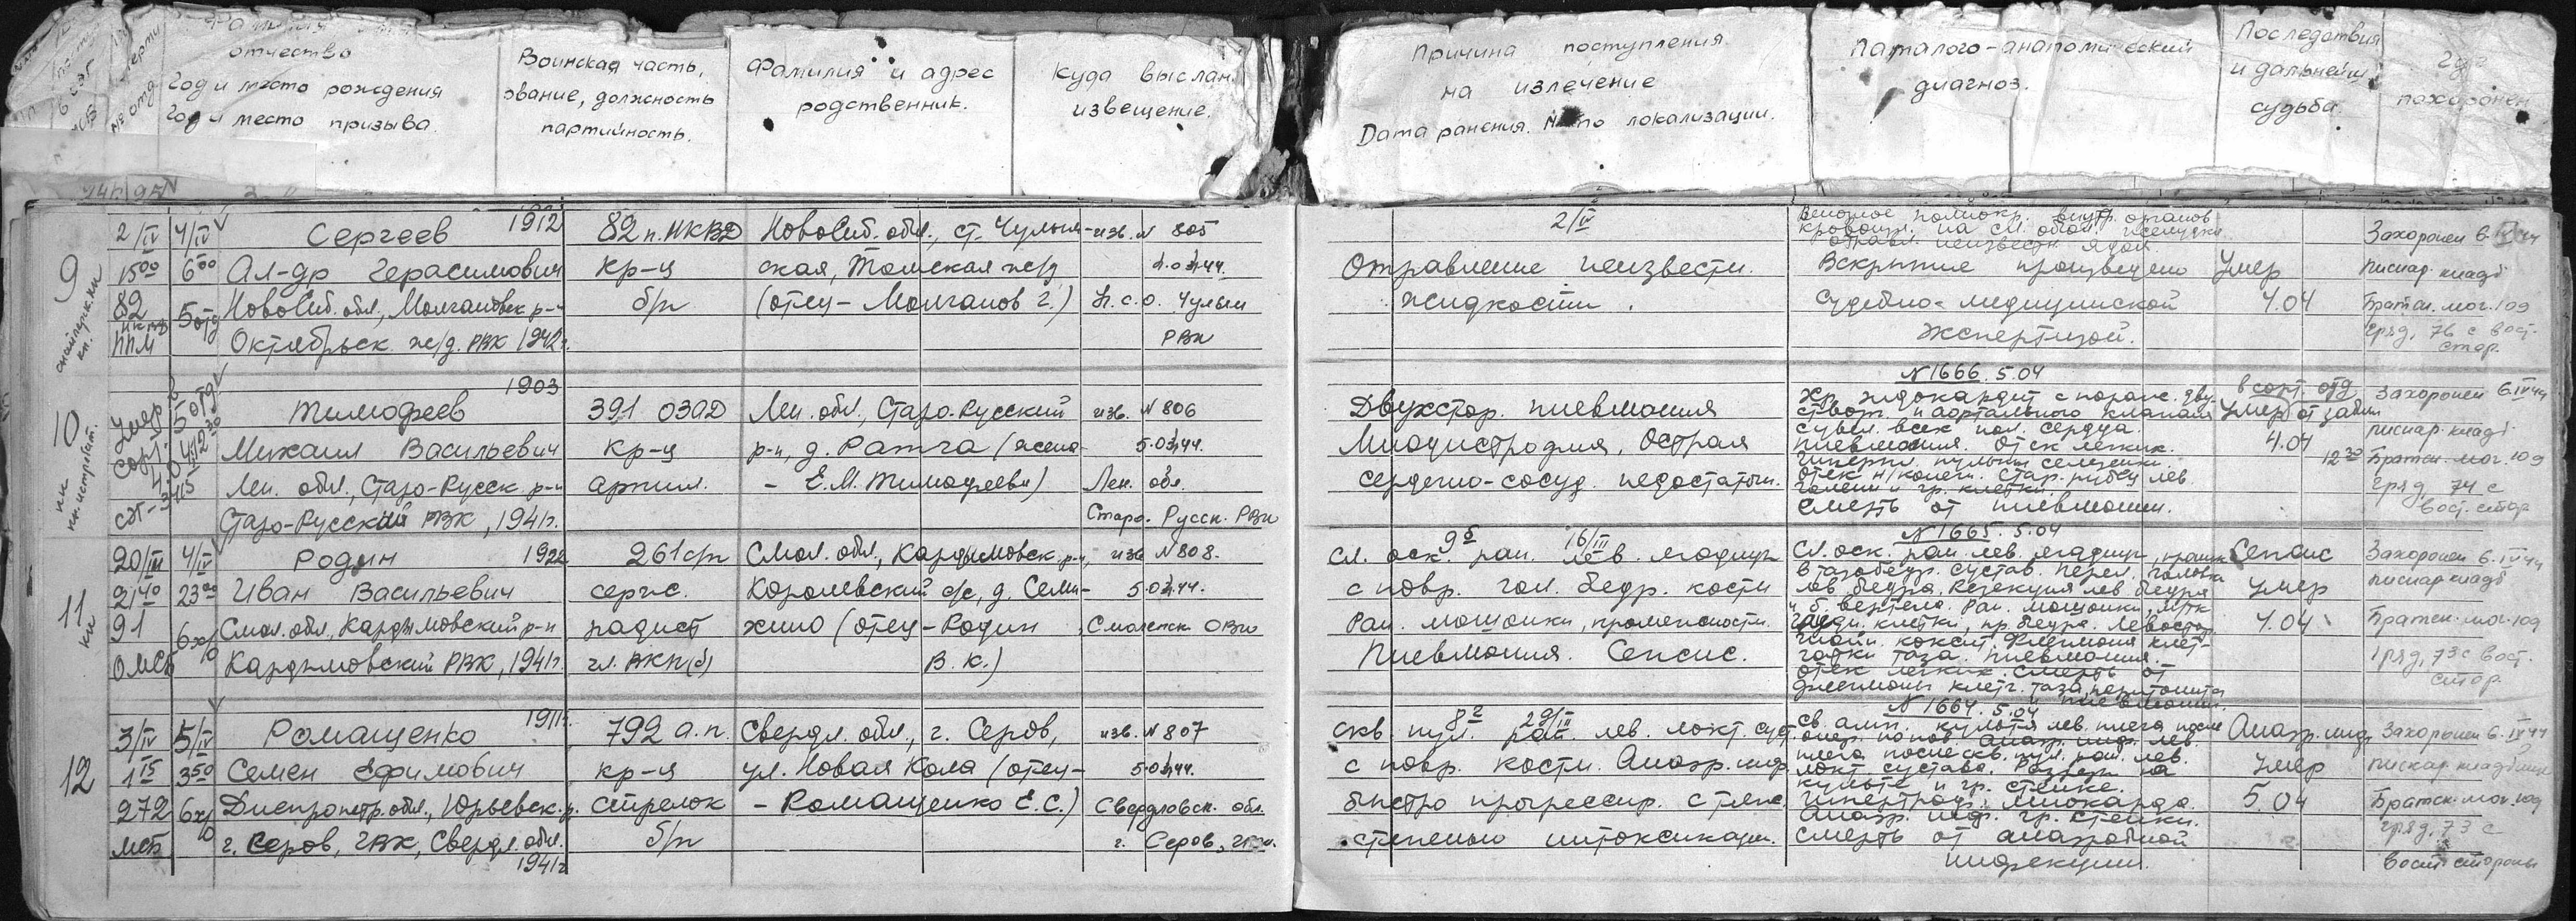 отчество
Год и место рождения
Год и место призыва.
Воинская часть,
звание, должность
партийность.
Фамилия и адрес
родственник.
Куда выслан.
извещение.
Причина поступления
на излечение
Дата ранения. № по локализации.
Паталого-анатомический
диагноз.
Последствия
и дальнейш
судьба.
Где
похоронен
9
2/IV 4/IV Сергеев 1912 82 п. НКВД Новосиб. обл., ст. Чулым- изв. N 805
15 00 6 00 Ал-др Герасимович кр-ц ская, Томская ж/д 4.04.44.
82 5 отд Новосиб. обл., р-н б/п (отец - Молганов г.) Н.С.О. Чулым
НКВД
ППМ Октябрьск. ж/д. РВК 1942г. РВК
2/IV
Отравление неизвестн.
жидкости.
Венозное полнокр. внутр. органов
кровоизл. на сл. обол. желудка
отравл. неизвестн. ядом.
Вскрытие произведено
Судебно-медицинской
Экспертизой.
Умер
4.04
Захоронен 6.IV 44
пискар. кладб
Братск. мог. 109
гряд, 76 с вост.
стор.
10
Умер в
сорт. 5 отд
4.04 12 30
Тимофеев 1903 391 ОЗАД Лен. обл., Старо-Русский изв. N 806
Михаил Васильевич кр-ц р-н, д. Ратча (жена- 5.04.44.
Лен. обл., Старо-Русск р-н артил. - Е.М. Тимофеева) Лен. обл.
Старо-Русский РВК, 1941г. Старо-Русск. РВК
Двухстор. пневмония
Миодистрофия. Острая
сердечно-сосуд. недостаточн.
N 1666. 5.04
Хр. эндокардит с пораж. дву-
створ. и аортального клапана
сужен. всех пол. сердца.
пневмония. Отек легких.
Гиперпл. пульпы селезенки.
Отек н/конечн. Стар. рубец лев.
голени и гр. клетки.
Смерть от пневмонии.
в сорт. отд
Умер от забол
4.04
12 30
Захоронен 6.IV 44
пискар. кладб
Братск. мог. 109
гряд, 74 с
вост. стор
11
20/III 4/IV Родин 1922 261 с/п Смол. обл., Кардымовск. р-н, изв N 808.
21 40 23 00 Иван Васильевич серж. Королевский с/с, д. Семи- 5.04.44.
91 6 хир Смол. обл., Кардымовский р-н радист хино (отец - Родин Смоленск ОВК
ОМСБ Кардымовский РВК, 1941г. чл. ВКП(б) В.К.)
9 б 16/III
Сл. оск. ран. лев. ягодицы
с повр. гол. бедр. кости
Ран. мошонки, промежности.
Пневмония. Сепсис.
N 1665. 5.04
Сл. оск. ран. лев. ягодицы, проник
в тазобедр. сустав. Перел. головки
лев. бедра. Резекция лев. бедра
и б. вертела. Ран. мошонки, мягк
груди. клетки, пр. бедра. Левостор
гнойн. коксит. Флегмона клет-
чатки таза. Пневмония.
отек легких. Смерть от
флегмоны клетч. таза, перитонита
и пневмонии.
Сепсис
Умер
4.04
Захоронен 6.IV 44
пискар кладб
Братск. мог. 109
1 ряд, 73 с вост.
стор.
12
3/IV 5/IV Романщенко 1911г. 792 а.п. Свердл. обл., г. Серов, изв. N 807
1 15 3 50 Семен Ефимович кр-ц ул. Новая Кола (отец- 5.04.44.
272 6 хир Днепропетр. обл., Юрьевск. р. стрелок - Романщенко Е.С.) Свердловск. обл.
МСБ г. Серов, ГВК, Свердл. обл. б/п г. Серов,
1941г
8 2 29/III
Скв. пул. ран. лев. локт. суст.
с повр. кости. Анаэр. инф.
быстро прогрессир. с тяж.
степенью интоксикации.
N 1664. 5.04
Св. амп. культя лев. плеча после
опер. по пов. анаэр. инф. лев.
плеча после скв. пул. ран. лев.
локт. сустава. Разрезы на
культе и гр. стенке.
Гипертроф. миокарда.
Анаэр. инф. гр. стенки.
Смерть от анаэробной
инфекции.
Анаэр. инф
Умер
5.04
Захоронен 6.IV 44
пискар. кладбище
Братск. мог. 109
гряд, 73 с
вост. стороны